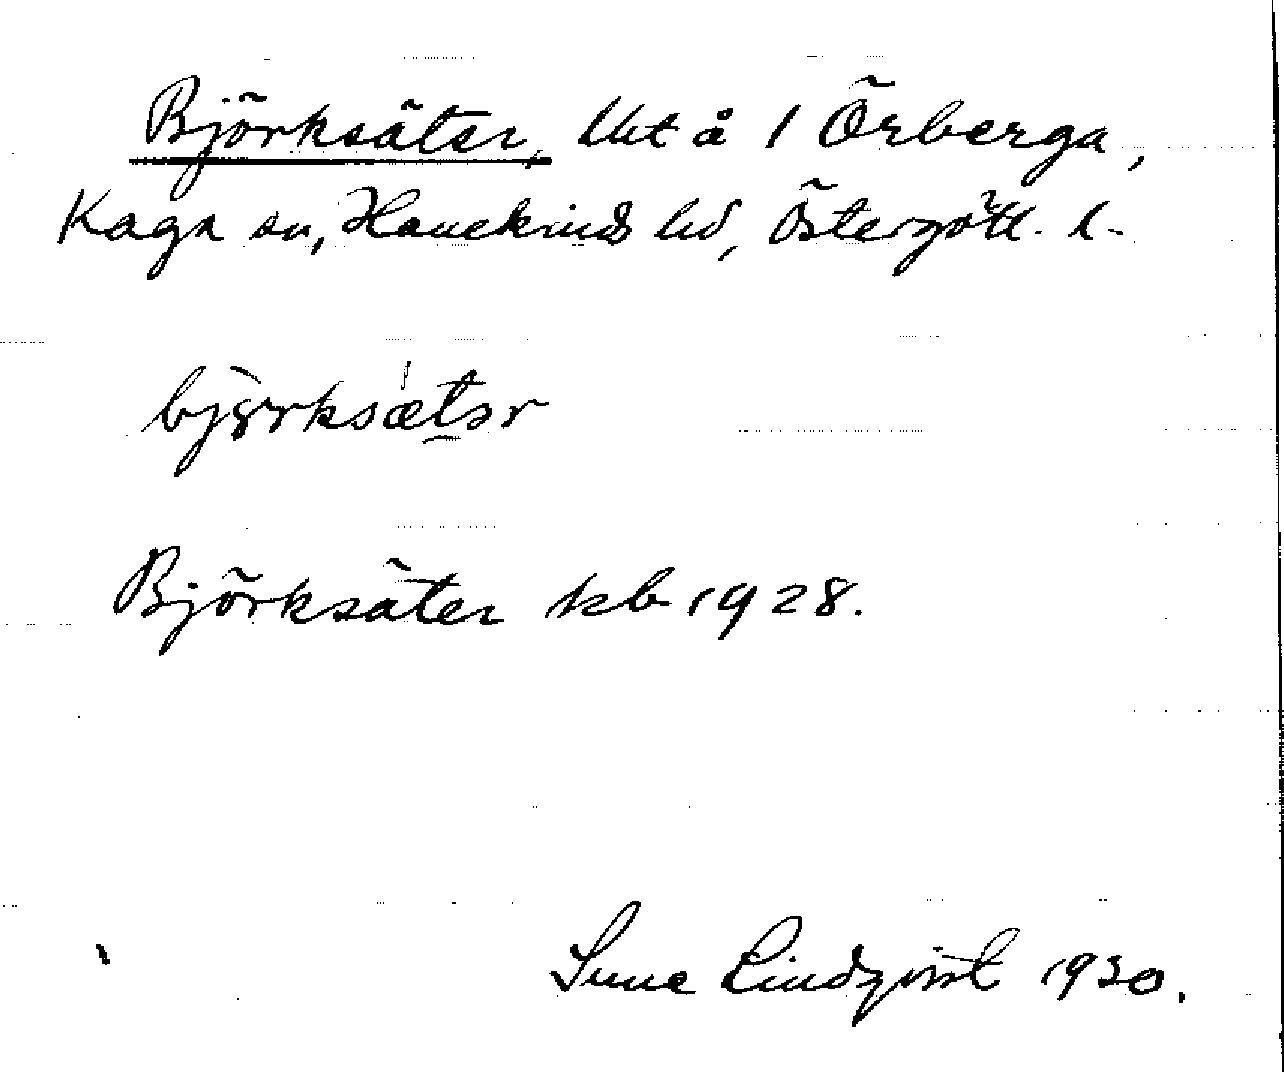 Björksäter, lht å 1 Örberga,
Kaga sn, Hanekinds hd, Östergötl. l.
Björksäter kb 1928.
Sune Lindqvist 1930.